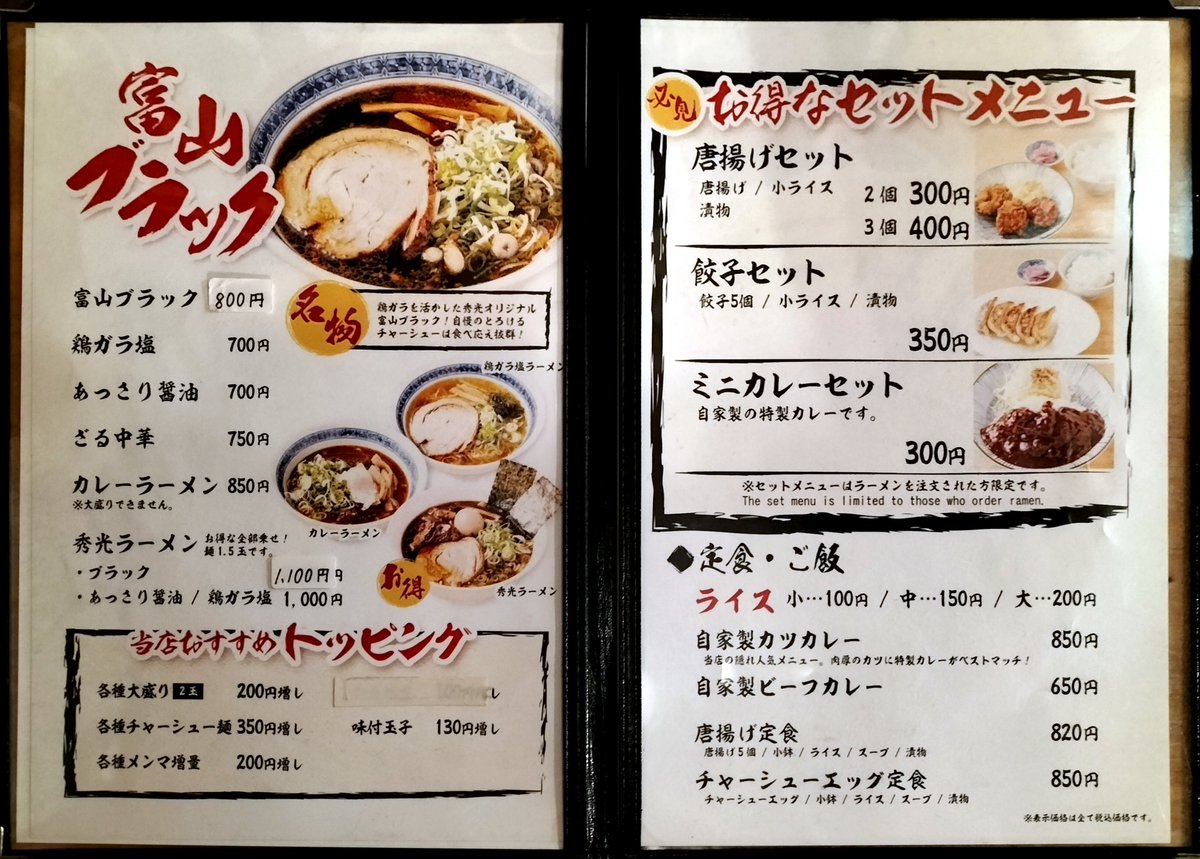 富山
ブラック
富山ブラック 800円
鶏ガラ塩 700円
あっさり醤油 700円
ざる中華 750円
カレーラーメン 850円
※大盛りできません。
秀光ラーメン お得な全部乗せ!
麺1.5玉です。
・ブラック 1,100円
・あっさり醤油 / 鶏ガラ塩 1,000円
名物
鶏ガラを活かした秀光オリジナル
富山ブラック!自慢のとろける
チャーシューは食べ応え抜群!
鶏ガラ塩ラーメン
カレーラーメン
お得
秀光ラーメン
当店おすすめトッピング
各種大盛り 2玉 200円増し
各種チャーシュー麺 350円増し
味付玉子 130円増し
各種メンマ増量 200円増し
必見 お得なセットメニュー
唐揚げセット
唐揚げ / 小ライス
漬物
2個 300円
3個 400円
餃子セット
餃子5個 / 小ライス / 漬物
350円
ミニカレーセット
自家製の特製カレーです。
300円
※セットメニューはラーメンを注文された方限定です。
The set menu is limited to those who order ramen.
◆定食・ご飯
ライス 小…100円 / 中…150円 / 大…200円
自家製カツカレー 850円
当店の隠れ人気メニュー。肉厚のカツに特製カレーがベストマッチ!
自家製ビーフカレー 650円
唐揚げ定食 820円
唐揚げ5個 / 小鉢 / ライス / スープ / 漬物
チャーシューエッグ定食 850円
チャーシューエッグ / 小鉢 / ライス / スープ / 漬物
※表示価格は全て税込価格です。